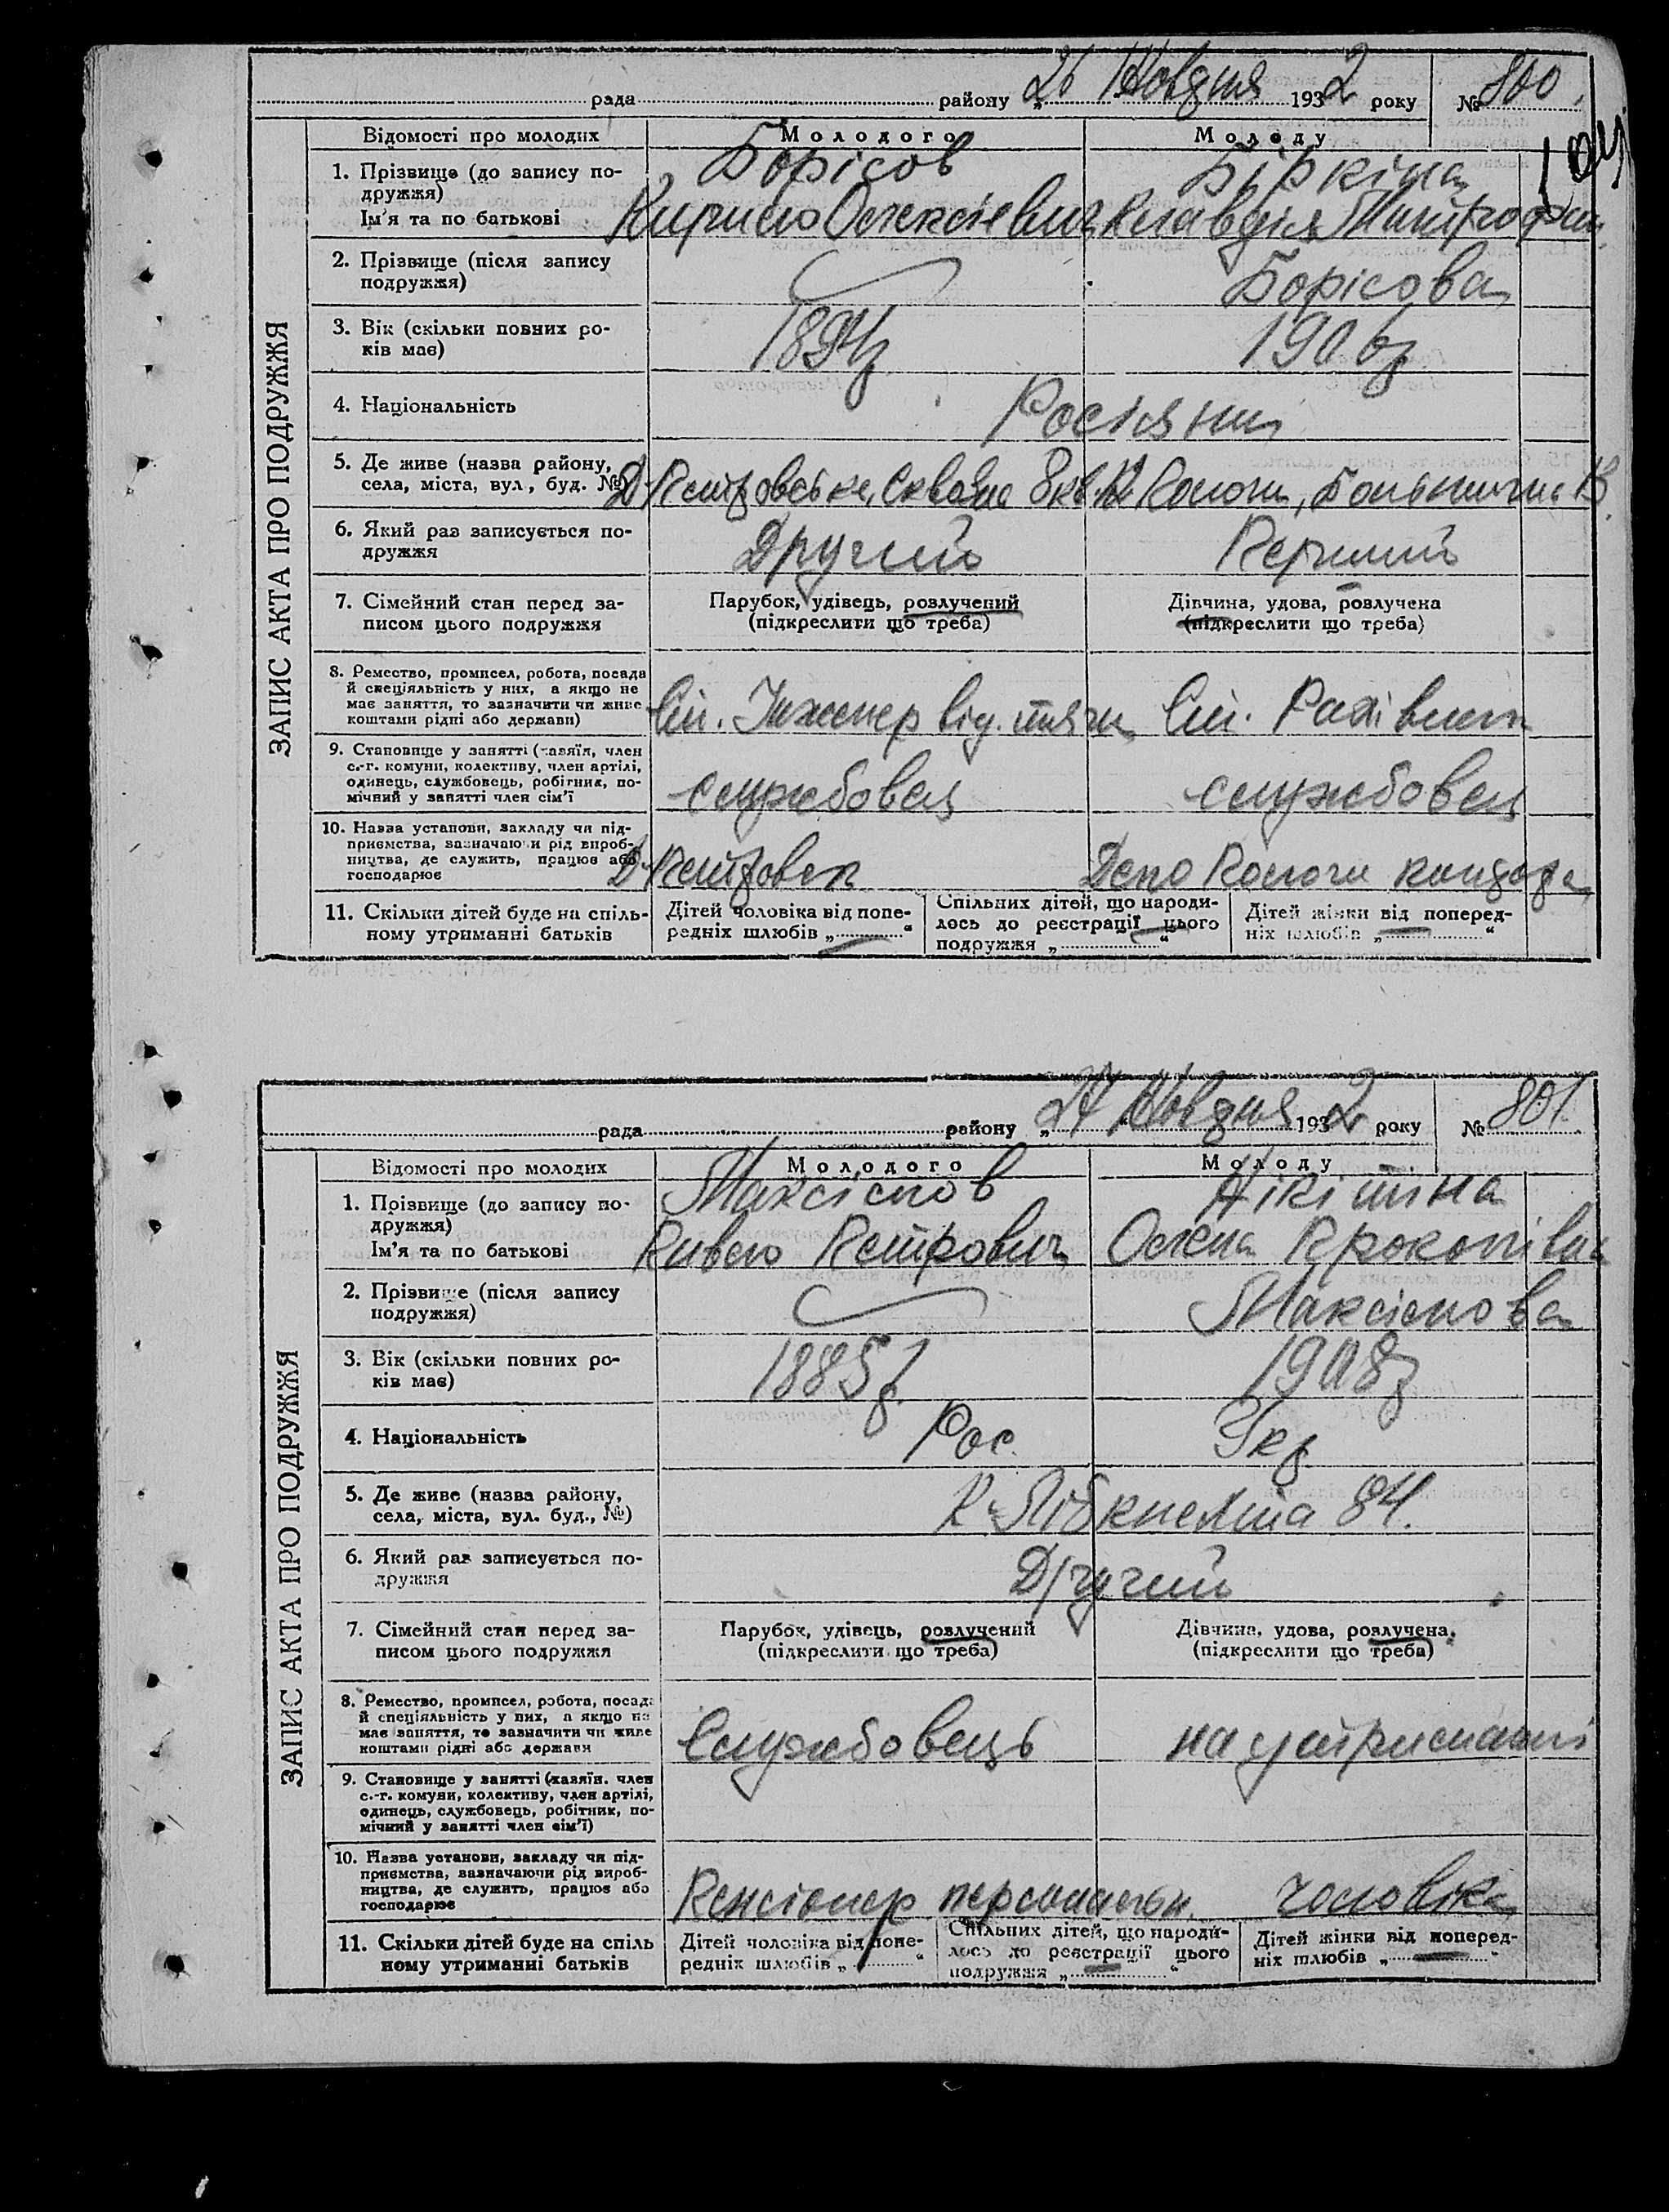 рада района „26 Жовдня 1932 року № 800.
ЗАПИС АКТА ПРО ПОДРУЖЖЯ
Відомості про молодих Молодого Молоду
1. Прізвище (до запису подружжя) Борісов Біркіна
Ім'я та по батькові Кирило Олексієвич Клавдія Митроф
2. Прізвище (після запису подружжя) Борісова
3. Вік (скільки повних років має) 1894р 1906р
4. Національність Росіяни
5. Де живе (назва району, села, міста, вул., буд. №) Д-Петровське, 8 кв. Болотничн 13
6. Який раз записується подружжя Другий Перший
7. Сімейний стан перед записом цього подружжя Парубок, удівець, розлучений Дівчина, удова, розлучена
(підкреслити що треба) (підкреслити що треба)
8. Ремество, промисел, робота, посада й спеціяльність у них, а якщо не має заняття, то зазначити чи живе коштами рідні або держави) Сл. Інженер від. тяги Сл. Рахівник
9. Становище у занятті (хазяїн, член с.-г. комуни, колективу, член артілі, одинець, службовець, робітник, помічний у занятті член сім'ї службовец службовец
10. Назва установи, закладу чи підприємства, зазначаючи рід виробництва, де служить, працює або господарює Д-Петровск Депо
11. Скільки дітей буде на спільному утриманні батьків Дітей чоловіка від попередніх шлюбів „ “ Спільних дітей, що народилось до реєстрації цього подружжя „ “ Дітей жінки від попередніх шлюбів „ “
рада району „24 Жовдня 1932 року № 801.
ЗАПИС АКТА ПРО ПОДРУЖЖЯ
Відомості про молодих Молодого Молоду
1. Прізвище (до запису подружжя) Максімов Нікітіна
Ім'я та по батькові Павло Петрович Олена Прокопівна
2. Прізвище (після запису подружжя) Максімова
3. Вік (скільки повних років має) 1885р. 1908р
4. Національність Рос. Укр
5. Де живе (назва району, села, міста, вул. буд., №) К-Лібкнехта 84.
6. Який раз записується подружжя Другий
7. Сімейний стан перед записом цього подружжя Парубок, удівець, розлучений Дівчина, удова, розлучена
(підкреслити що треба) (підкреслити що треба)
8. Ремество, промисел, робота, посада й спеціяльність у них, а якщо не має заняття, то зазначити чи живе коштами рідні або держави Службовець на утриманні
9. Становище у занятті (хазяїн. член с.-г. комуни, колективу, член артілі, одинець, службовець, робітник, помічний у занятті член сім'ї)
10. Назва установи, закладу чи підприємства, зазначаючи рід виробництва, де служить, працює або господарює Пенсіонер персональн. чоловіка
11. Скільки дітей буде на спільному утриманні батьків Дітей чоловіка від попередніх шлюбів „ “ Спільних дітей, що народилось до реєстрації цього подружжя „ “ Дітей жінки від попередніх шлюбів „ “